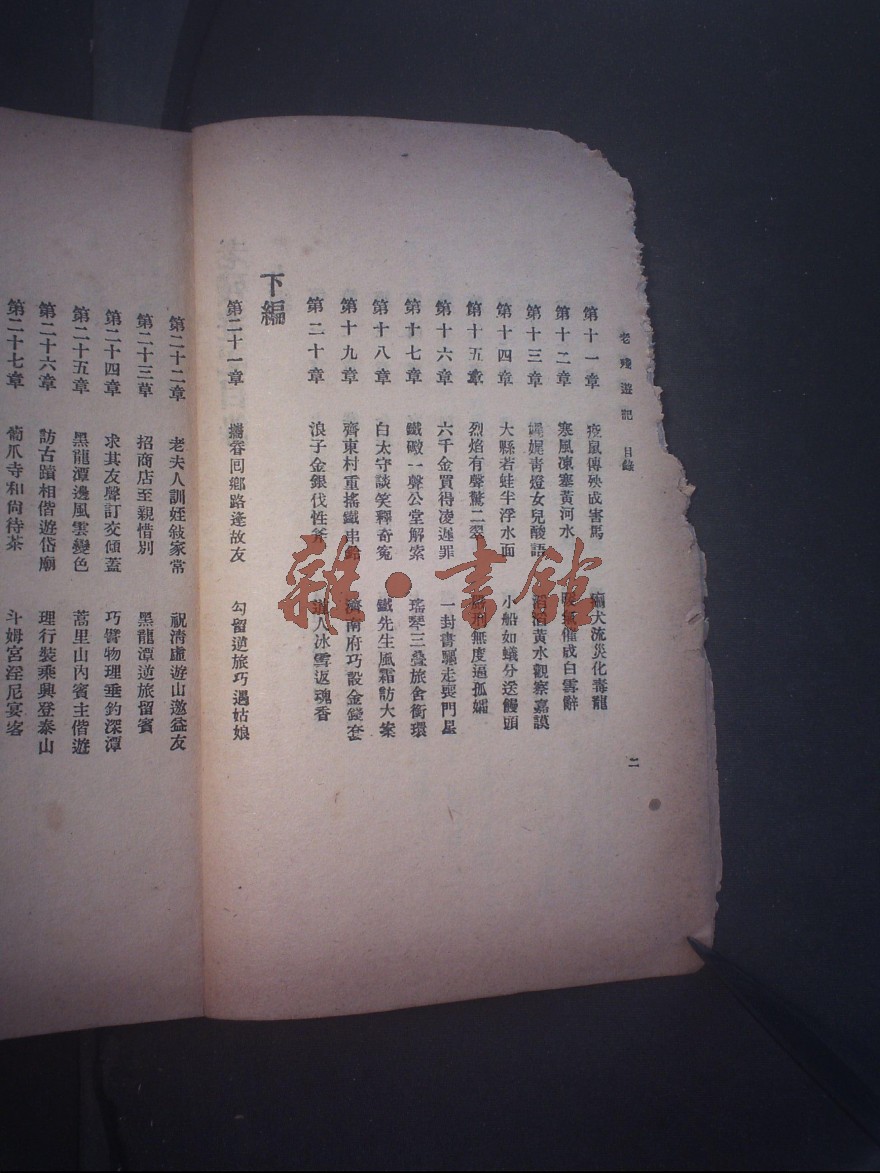 老殘遊記 目錄 二
第十一章 疫鼠傳殃成害馬 瘈犬流災化毒龍
第十二章 寒風凍塞黃河水 暖氣催成白雪辭
第十三章 娓娓青燈女兒酸語 滔滔黃水觀察嘉謨
第十四章 大縣若蛙半浮水面 小船如蟻分送饅頭
第十五章 烈焰有聲驚二翠 嚴刑無度逼孤孀
第十六章 六千金買得凌遲罪 一封書驅走喪門星
第十七章 鐵礮一聲公堂解索 瑤琴三疊旅舍銜環
第十八章 白太守談笑釋奇冤 鐵先生風霜訪大案
第十九章 齊東村重搖鐵串鈴 濟南府巧設金錢套
第二十章 浪子金銀伐性斧 道人冰雪返魂香
下編
第二十一章 攜眷回鄉路逢故友 勾留逆旅巧遇姑娘
第二十二章 老夫人訓姪敍家常 祝清虛遊山邀益友
第二十三草 招商店至親惜別 黑龍潭逆旅留賓
第二十四章 求其友聲訂交傾蓋 巧譬物理垂釣深潭
第二十五章 黑龍潭邊風雲變色 蒿里山內賓主偕遊
第二十六章 訪古蹟相偕遊岱廟 理行裝乘興登泰山
第二十七章 葡爪寺和尚待茶 斗姆宮淫尼宴客
雜·書館